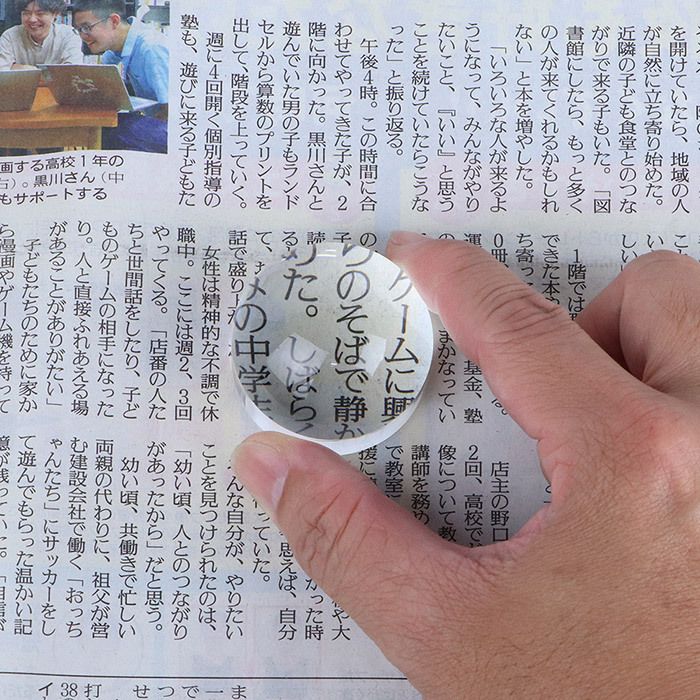 を開けていたら、地域の人
が自然に立ち寄り始めた。
近隣の子ども食堂とのつな
がりで来る子もいた。「図
書館にしたら、もっと多く
の人が来てくれるかもしれ
ない」と本を増やした。
「いろいろな人が来るよ
うになって、みんながやり
たいこと、『いい』と思う
ことを続けていたらこうな
った」と振り返る。
午後4時。この時間に合
わせてやってきた子が、2
階に向かった。黒川さんと
遊んでいた男の子もランド
セルから算数のプリントを
出して、階段を上っていく。
週に4回開く個別指導の
塾も、遊びに来る子どもた
画する高校1年の
右)。黒川さん(中
もサポートする
1階では
できた本や
ち寄っ
0冊
運 基金、塾
まかなってい
ゲームに興
らのそばで静か
めた。しばらく
の中学
話で盛り上が
女性は精神的な不調で休
職中。ここには週2、3回
やってくる。「店番の人た
ちと世間話をしたり、子ど
ものゲームの相手になった
り。人と直接ふれあえる場
があることがありがたい」
子どもたちのために家か
ら漫画やゲーム機を持って
店主の野口
2回、高校で
像について教
講師を務め
で教室
援に
かった時
思えば、自分
っていた。
そんな自分が、やりたい
ことを見つけられたのは、
「幼い頃、人とのつながり
があったから」だと思う。
幼い頃、共働きで忙しい
両親の代わりに、祖父が営
む建設会社で働く「おっち
ゃんたち」にサッカーをし
て遊んでもらった温かい記
憶が残っていた。「自信が